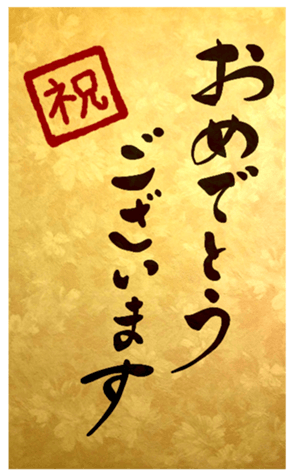 おめでとう
ございます
祝